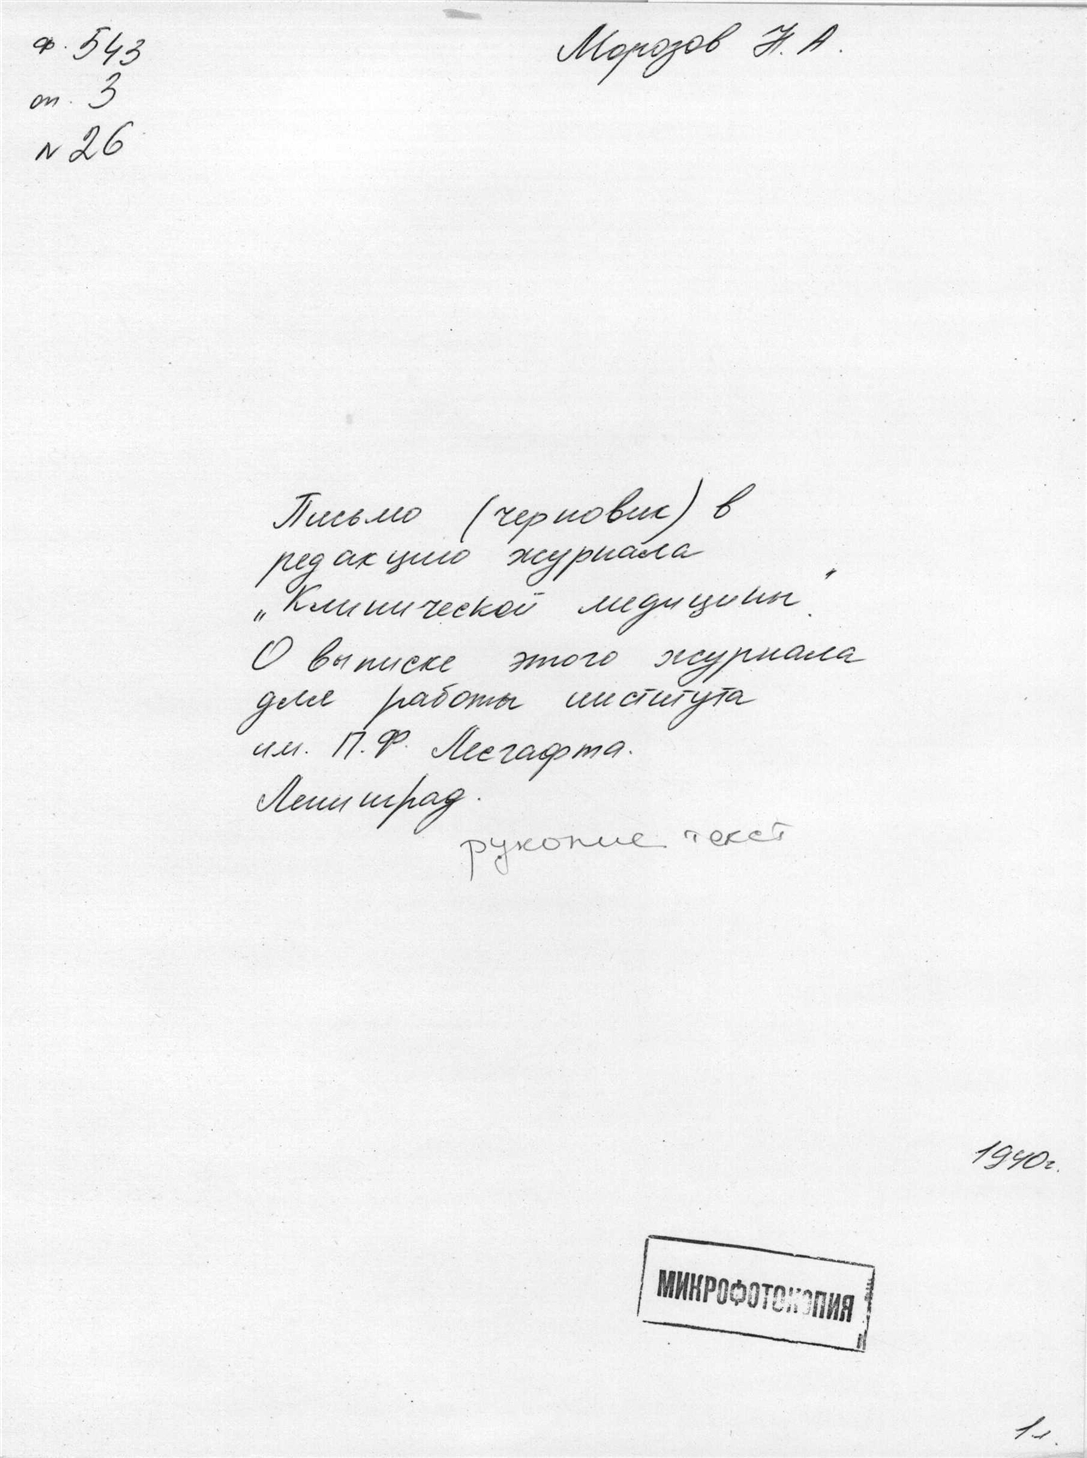 ф. 543
оп. 3
N 26
Морозов Н. А.
Письмо (черновик) в
редакцию журнала
„Клинической медицины".
О выписке этого журнала
для работы института
им. П.Ф. Лесгафта.
Ленинград.
рукопис текст
1940г.
МИКРОФОТОКОПИЯ
1 л.